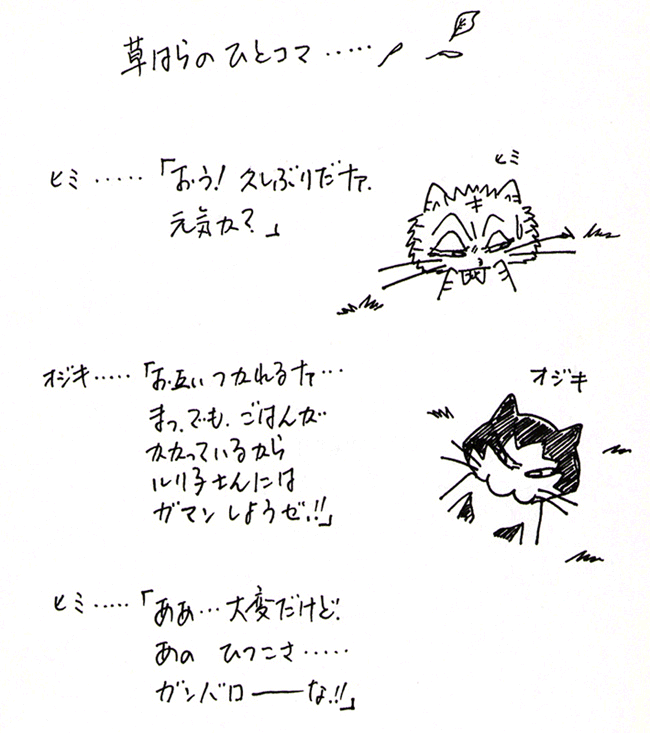 草はらのひとコマ……
ヒミ
ヒミ……「おう！久しぶりだナァ.
元気カ？」
オジキ
オジキ……「お互いつかれるナァ…
まっ.でも.ごはんが
カカっているから
ルリ子さんには
ガマンしようぜ.!!」
ヒミ……「ああ…大変だけど.
あの ひつこさ……
ガンバロ――な.!!」